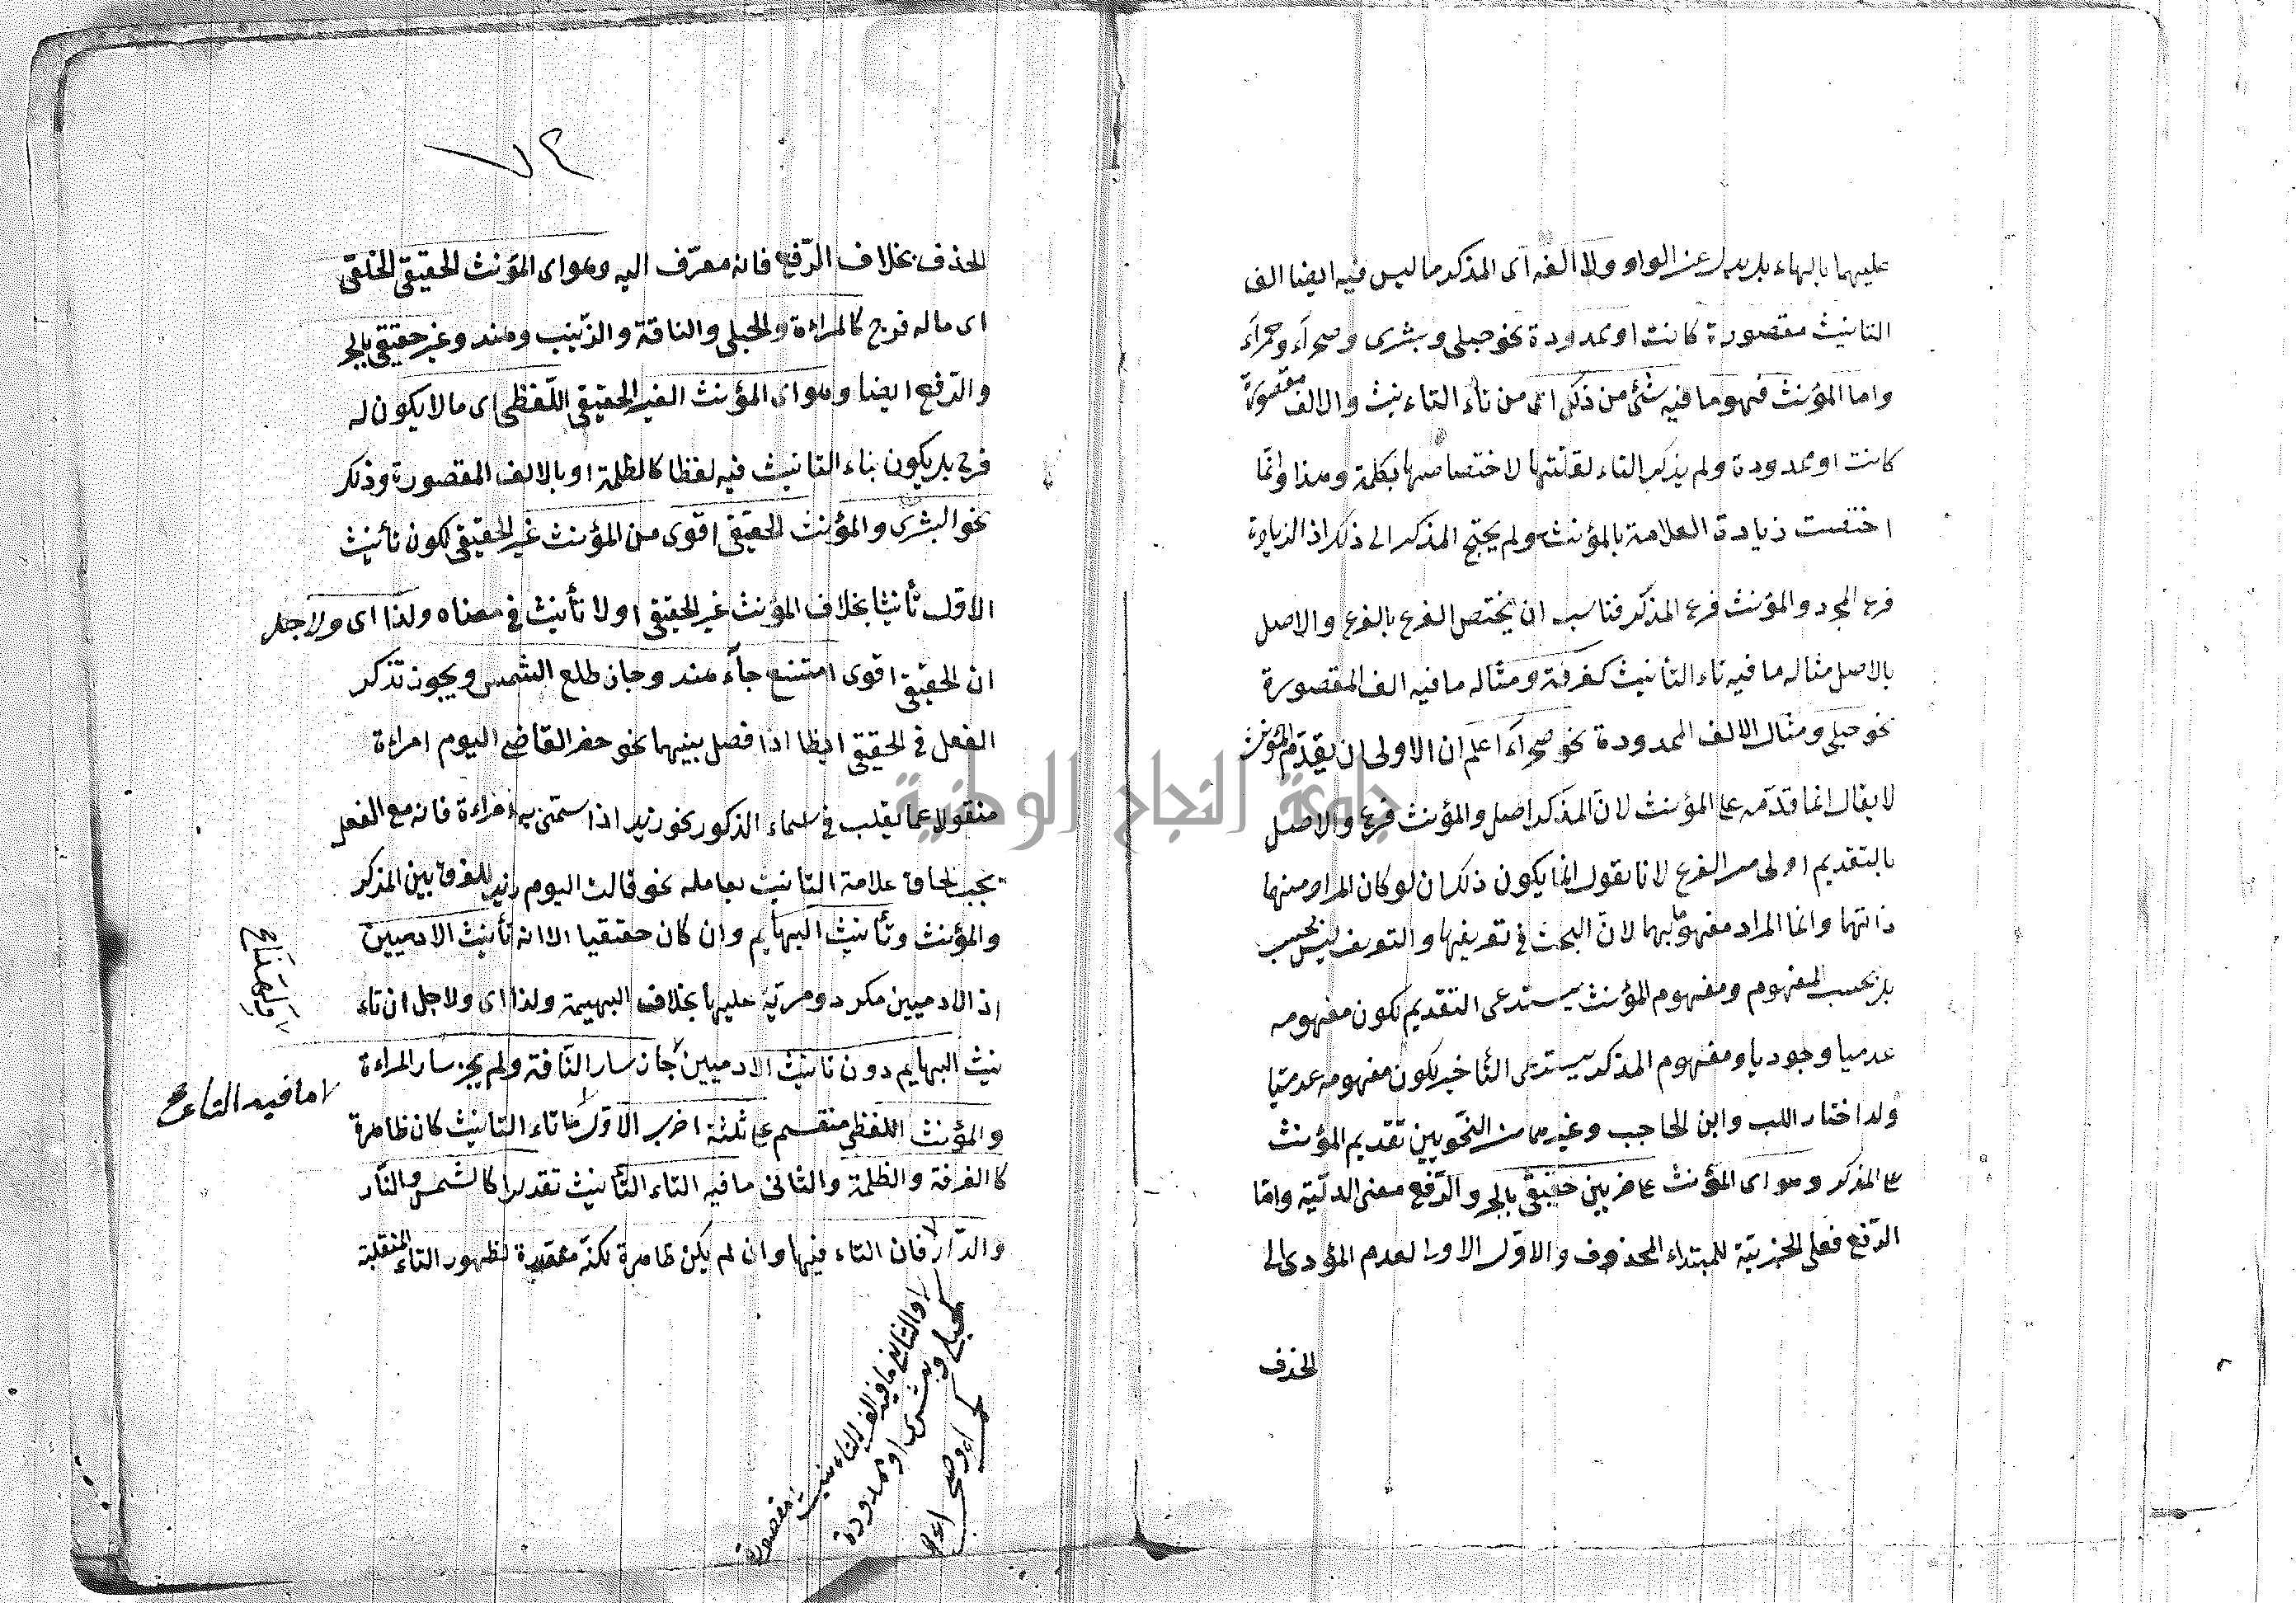 عليهما بالهاء بل يبدل عن الواو ولا الف اى المذكر ما ليس فيه ايضا الف
التانيث مقصورة كانت او ممدودة نحو حبلى وبشرى وصحرآء وحمرآء
واما المؤنث فهو ما فيه شئ من ذلك اى من تاء التاءنيث والالف مقصورة
كانت او ممدودة ولم يذكر التاء لقلتها لاختصاصها بكلمة وهذا وانما
اختصت زيادة العلامة بالمؤنث ولم يحتج المذكر الى ذلك اذ الزيادة
فرع المجرد والمؤنث فرع المذكر فناسب ان يختص الفرع بالفرع والاصل
بالاصل مثاله ما فيه تاء التأنيث كغرفة ومثاله ما فيه الف المقصورة
نحو حبلى ومثال الالف الممدودة نحو صحرآء اعلم ان الاولى ان يقدّم المؤنث
لا يقال انما قدّمه على المؤنث لان المذكر اصل والمؤنث فرع والاصل
بالتقديم اولى من الفرع لانا نقول انما يكون ذلك ان لو كان المراد منهما
ذاتهما وانما المراد مفهومهما لانّ البحث فى تعريفها والتعريف ليس بحسب
بل بحسب المفهوم ومفهوم المؤنث يستدعى التقديم لكون مفهومه
عدميا وجوديا ومفهوم المذكر يستدعى التأخير لكون مفهومه عدميّا
ولذا اختار اللب وابن الحاجب وغيرهما من النحويين تقديم المؤنث
على المذكر وهو اى المؤنث على ضربين حقيقىّ بالجر والرّفع معنى البدليّة وامّا
الرّفع فعلى الخبريّة للمبتداء المحذوف والاوّل الاولى لعدم المؤدى الى
الحذف
٧٢
الحذف بخلاف الرّفع فانه معرّف اليه وهو اى المؤنث الحقيقى الخلقى
اى ما له فرج كالمراءة والحبلى والناقة والزّينب وهند وغير حقيقى بالجر
والرّفع ايضا وهو اى المؤنث الغير الحقيقى اللّفظى اى ما لا يكون له
فرج بل يكون تاء التانيث فيه لفظا كالظلمة او بالالف المقصورة وذلك
نحو البشرى والمؤنث الحقيقى اقوى من المؤنث غير الحقيقى لكون تأنيث
الاوّل تأنيثا بخلاف المؤنث غير الحقيقى اولا تأنيث فى معناه ولذا اى ولاجل
ان الحقيقى اقوى امتنع جآء هند وجاز طلع الشمس ويجوز تذكر
الفعل فى الحقيقى ايظا اذا فصل بينهما نحو حضر القاضى اليوم امراءة
منقولا عما يغلب فى اسماء الذكور نحو زيد اذا سمّى به امراءة فانه مع الفعل
يجب الحاق علامة التانيث بعامله نحو قالت اليوم زيد للفرق بين المذكر
والمؤنث وتأنيث البهايم وان كان حقيقيا الا انه تأنيث الادميين
اذ الادميين مكرد ومزيّة عليها بخلاف البهيمة ولذا اى ولاجل ان تاء
نيث البهايم دون تانيث الادميين جاز سار النّاقة ولم يجز سار المراءة
والمؤنث اللفظى منقسم على ثلثة اضرب الاوّل ما تاء التانيث كان ظاهرة
كالغرفة والظلمة والثانى ما فيه التاء التّأنيث تقديرا كالشمس والنّار
والدّار فان التاء فيها وان لم يكن ظاهرة لكنّه مقدرة لظهور التاء المنقلبة
ما فيه التاء صح
والثالث ما فيه الف التاءنيث مقصورة
كحبلى وبشرى او ممدودة
كحمراء وصحراء
جامعة النجاح الوطنية